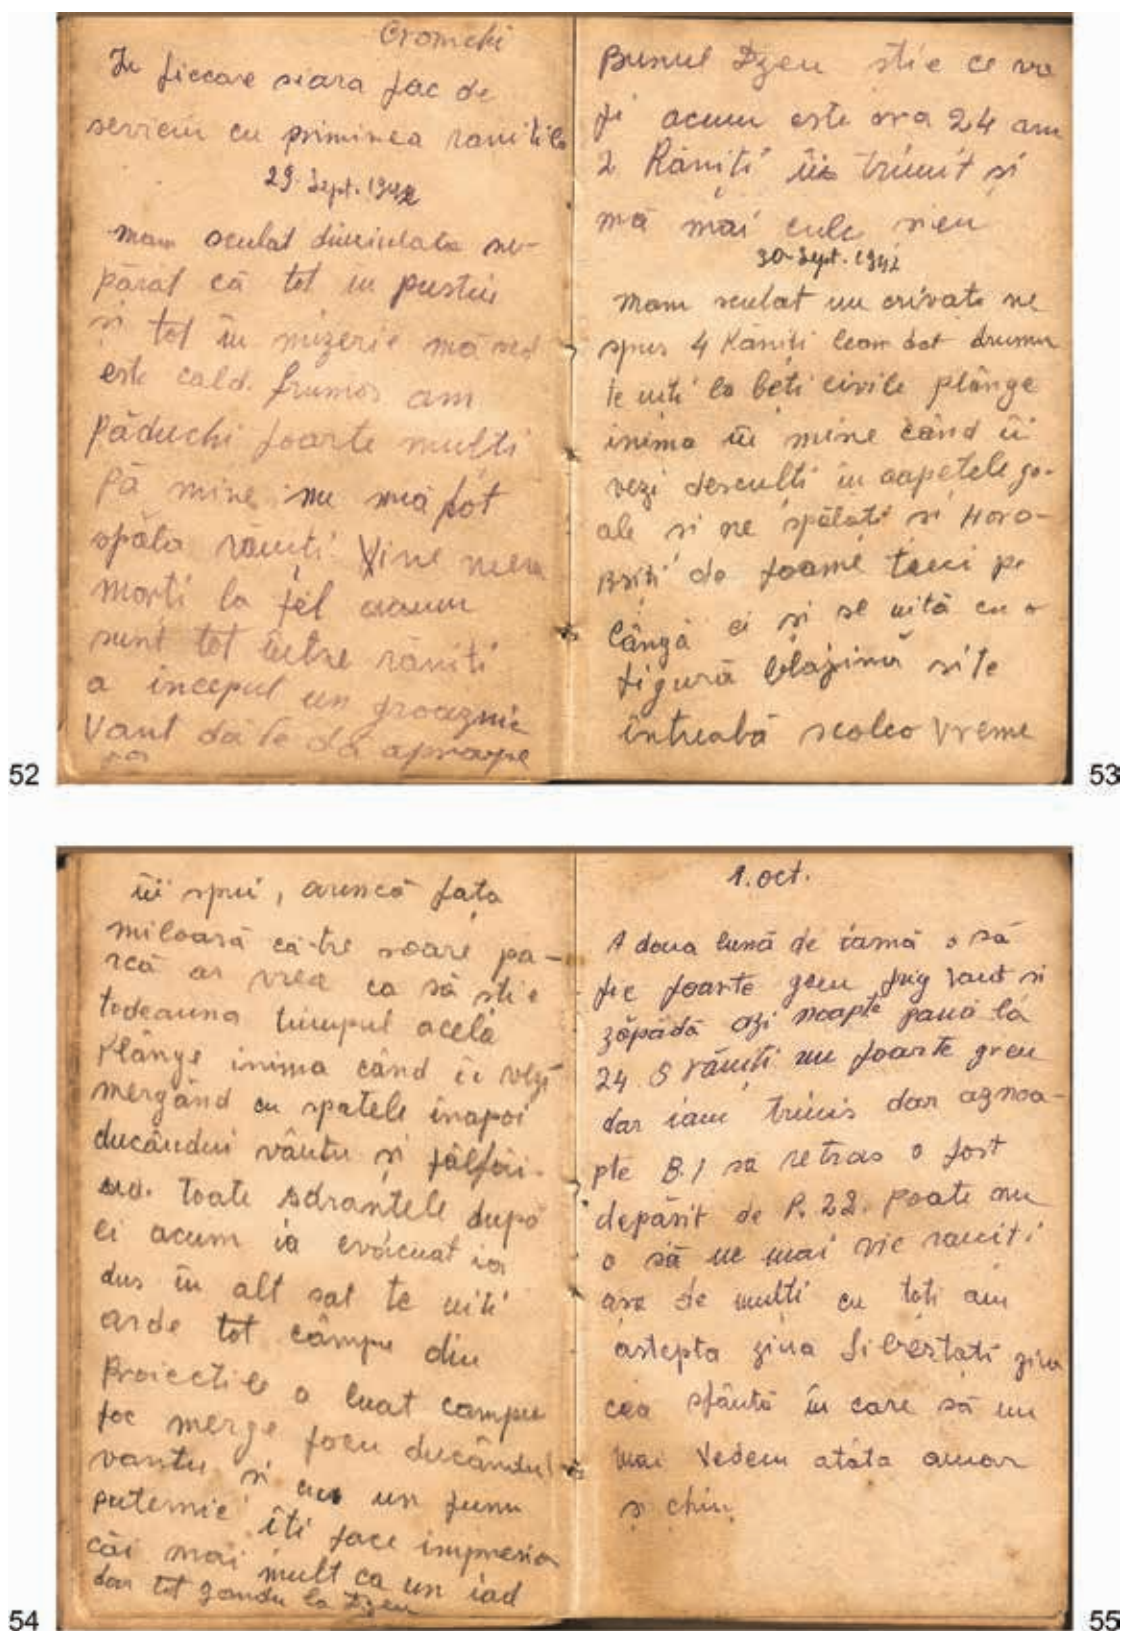 Gromchi
In fiecare seara fac de
serviciu cu primirea raniti
29. Sept. 1942
mam sculat dimineata
părat că tot in pustiu
si tot în mizerie mă
este cald. frumos am
păduchi foarte multi
pă mine nu mă pot
spăla răniti Vine mereu
morți la fel acum
sunt tot între răniti
a inceput un groaznic
Vant dă aproape
52
Bunul Dzeu stie ce va
fi acum este ora 24 am
2 Răniți trimit si
mă mai culc si eu
30. Sept. 1942
mam sculat un crivat ne
spus 4 Răniti leam dat drumu
te uiti la beti civile plânge
inima în mine când îi
vezi desculti in capetele go-
ale si ne spălati si Horo-
psiti de foame treci pe
lângă ei si se uită cu o
figură blajină si te
intreabă scolco vreme
53
îi spui, aruncă fata
miloară că-tre soare pa-
rcă ar vrea ca să stie
todeauna timpul acela
Plânge inima când îi vezi
mergând cu spatele inapoi
ducândui vântu si fâlfâi-
nd. toate sdrantele după
ei acum ia evacuat ia
dus în alt sat te uiti
arde tot câmpu din
Proiectile a luat campu
foc merge focu ducându
vantu si un fumu
puternic îti face impresia
căi mai mult ca un iad
dar tot gandu la Dzeu
54
1. oct.
A doua lună de iarnă o să
fie foarte greu frig vant si
zăpadă azi noapte pană la
24 5 răniți nu foarte greu
dar iam trimis dar aznoa-
pte B.1 sa retras o fost
depărit de R. 22. poate nu
o să ne mai vie raniti
asa de multi cu toti am
astepta ziua libertati ziua
cea sfântă în care să nu
mai Vedem atâta amar
si chin
55